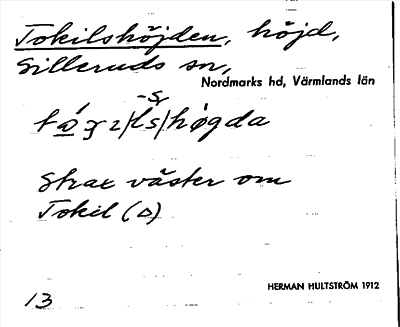 Tokilshöjden, höjd,
Silleruds sn,
Nordmarks hd, Värmlands län
Strax väster om
Tokil (△)
HERMAN HULTSTRÖM 1912
13